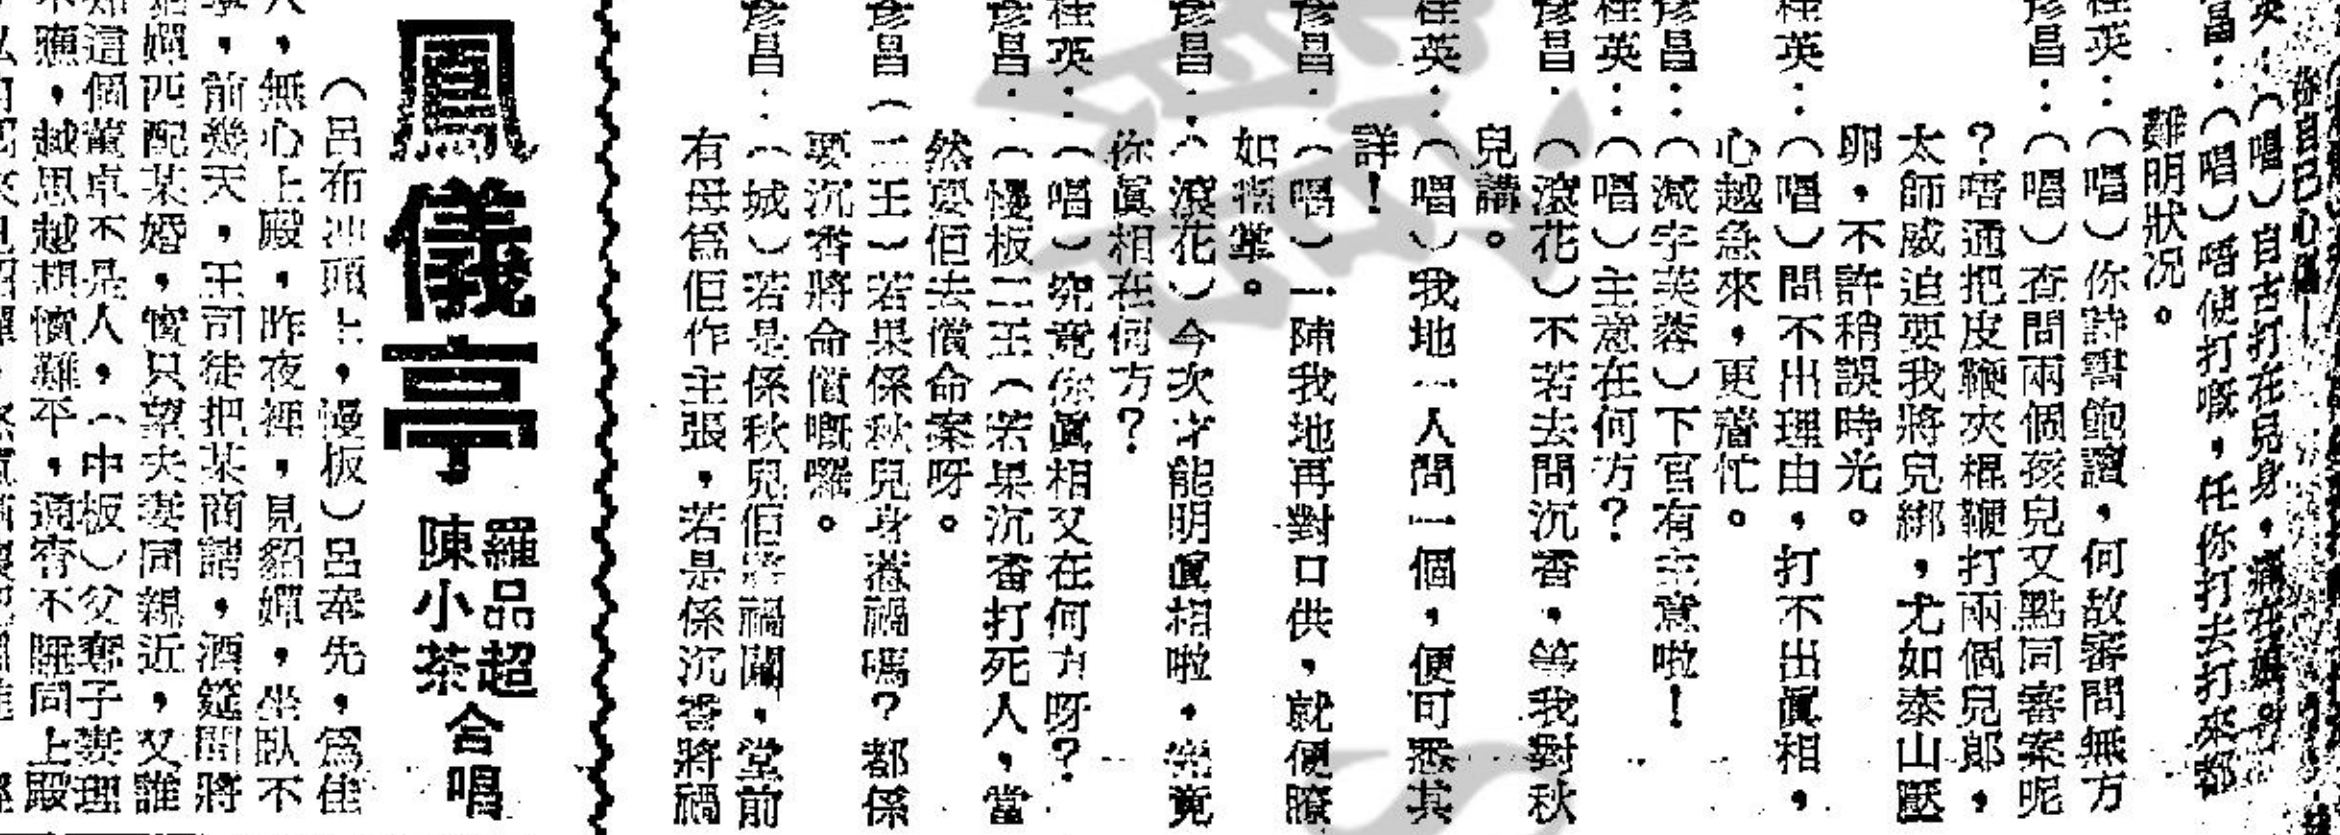 你自己心
英：（唱）自古打在兒身，痛在娘
昌：（唱）唔使打嘅，任你打去打來都
難明狀况。
桂英：（唱）你詩書飽讀，何故審問無方
彥昌：（唱）查問兩個孩兒又點同審案呢
？唔通把皮鞭夾棍鞭打兩個兒郞，
太師威迫要我將兒綁，尤如泰山壓
卵，不許稍誤時光。
桂英：（唱）問不出理由，打不出眞相，
心越急來，更着忙。
彥昌：（減字芙蓉）下官有主意啦！
桂英：（唱）主意在何方？
彥昌：（滾花）不若去問沉香，等我對秋
兒講。
桂英：（唱）我地一人問一個，便可悉其
詳！
彥昌：（唱）一陣我地再對口供，就便瞭
如指掌。
彥昌：（滾花）今次才能明眞相啦，究竟
你眞相在何方？
桂英：（唱）究竟你眞相又在何方呀？
彥昌：（慢板二王（若果沉香打死人，當
然要佢去償命案呀。
彥昌（二王）若果係秋兒身惹禍嗎？都係
要沉香將命償嘅囉。
彥昌：（城）若是係秋兒佢惹禍闖，堂前
有母爲佢作主張，若是係沉香將禍
鳳儀亭
羅品超
陳小茶
合唱
（呂布冲頭上，慢板）呂奉先，爲佳
人，無心上殿，昨夜裡，見貂嬋，坐臥不
寧，前幾天，王司徒把某商請，酒筵開將
貂嬋匹配某婚，實只望夫妻同親近，又誰
知這個董卓不是人，（中板）父奪子妻理
不應，越思越想憤難平，